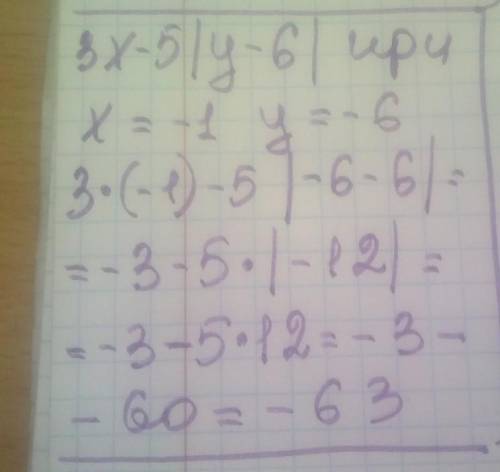 3x-5|y-6| при
x = -1 y = -6
3·(-1)-5|-6-6|=
=-3-5·|-12|=
=-3-5·12=-3-
-60=-63